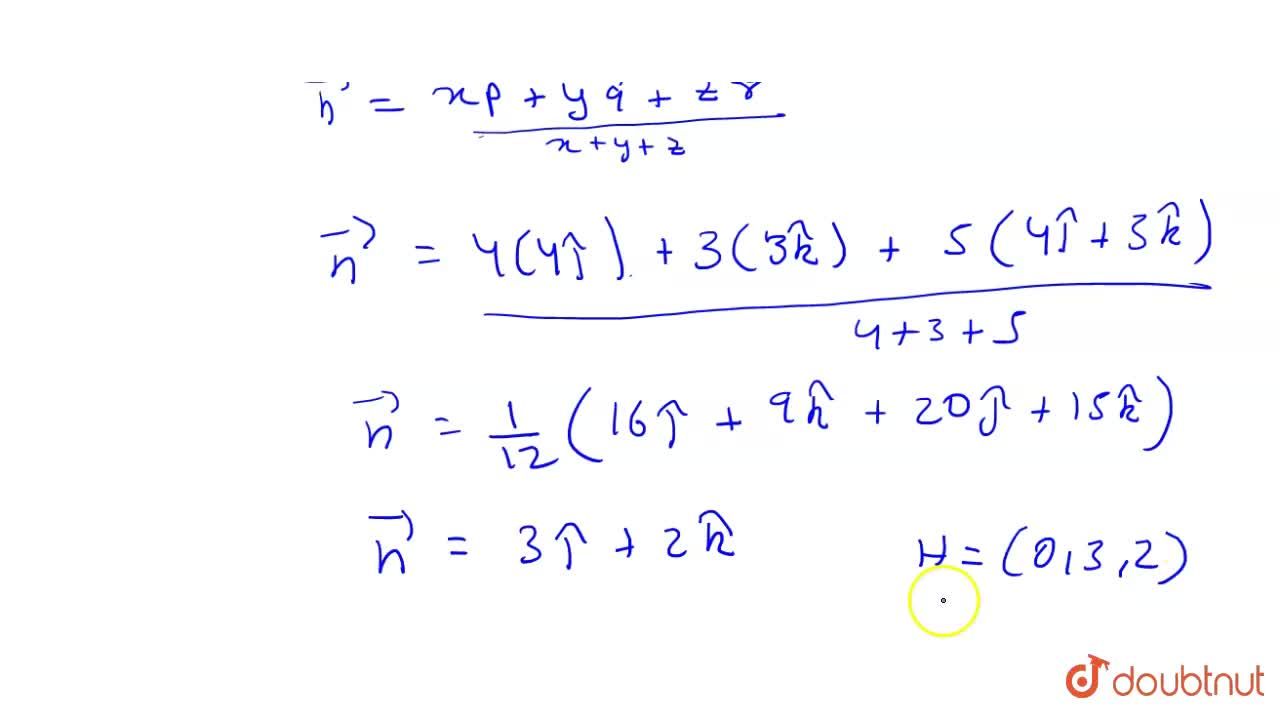 h⃗ = xp + yq + zr
x + y + z
h⃗ = 4(4ĵ) + 3(3k̂) + 5(4ĵ + 3k̂)
4 + 3 + 5
h⃗ = 1/12 (16ĵ + 9k̂ + 20ĵ + 15k̂)
h⃗ = 3ĵ + 2k̂
H = (0, 3, 2)
doubtnut